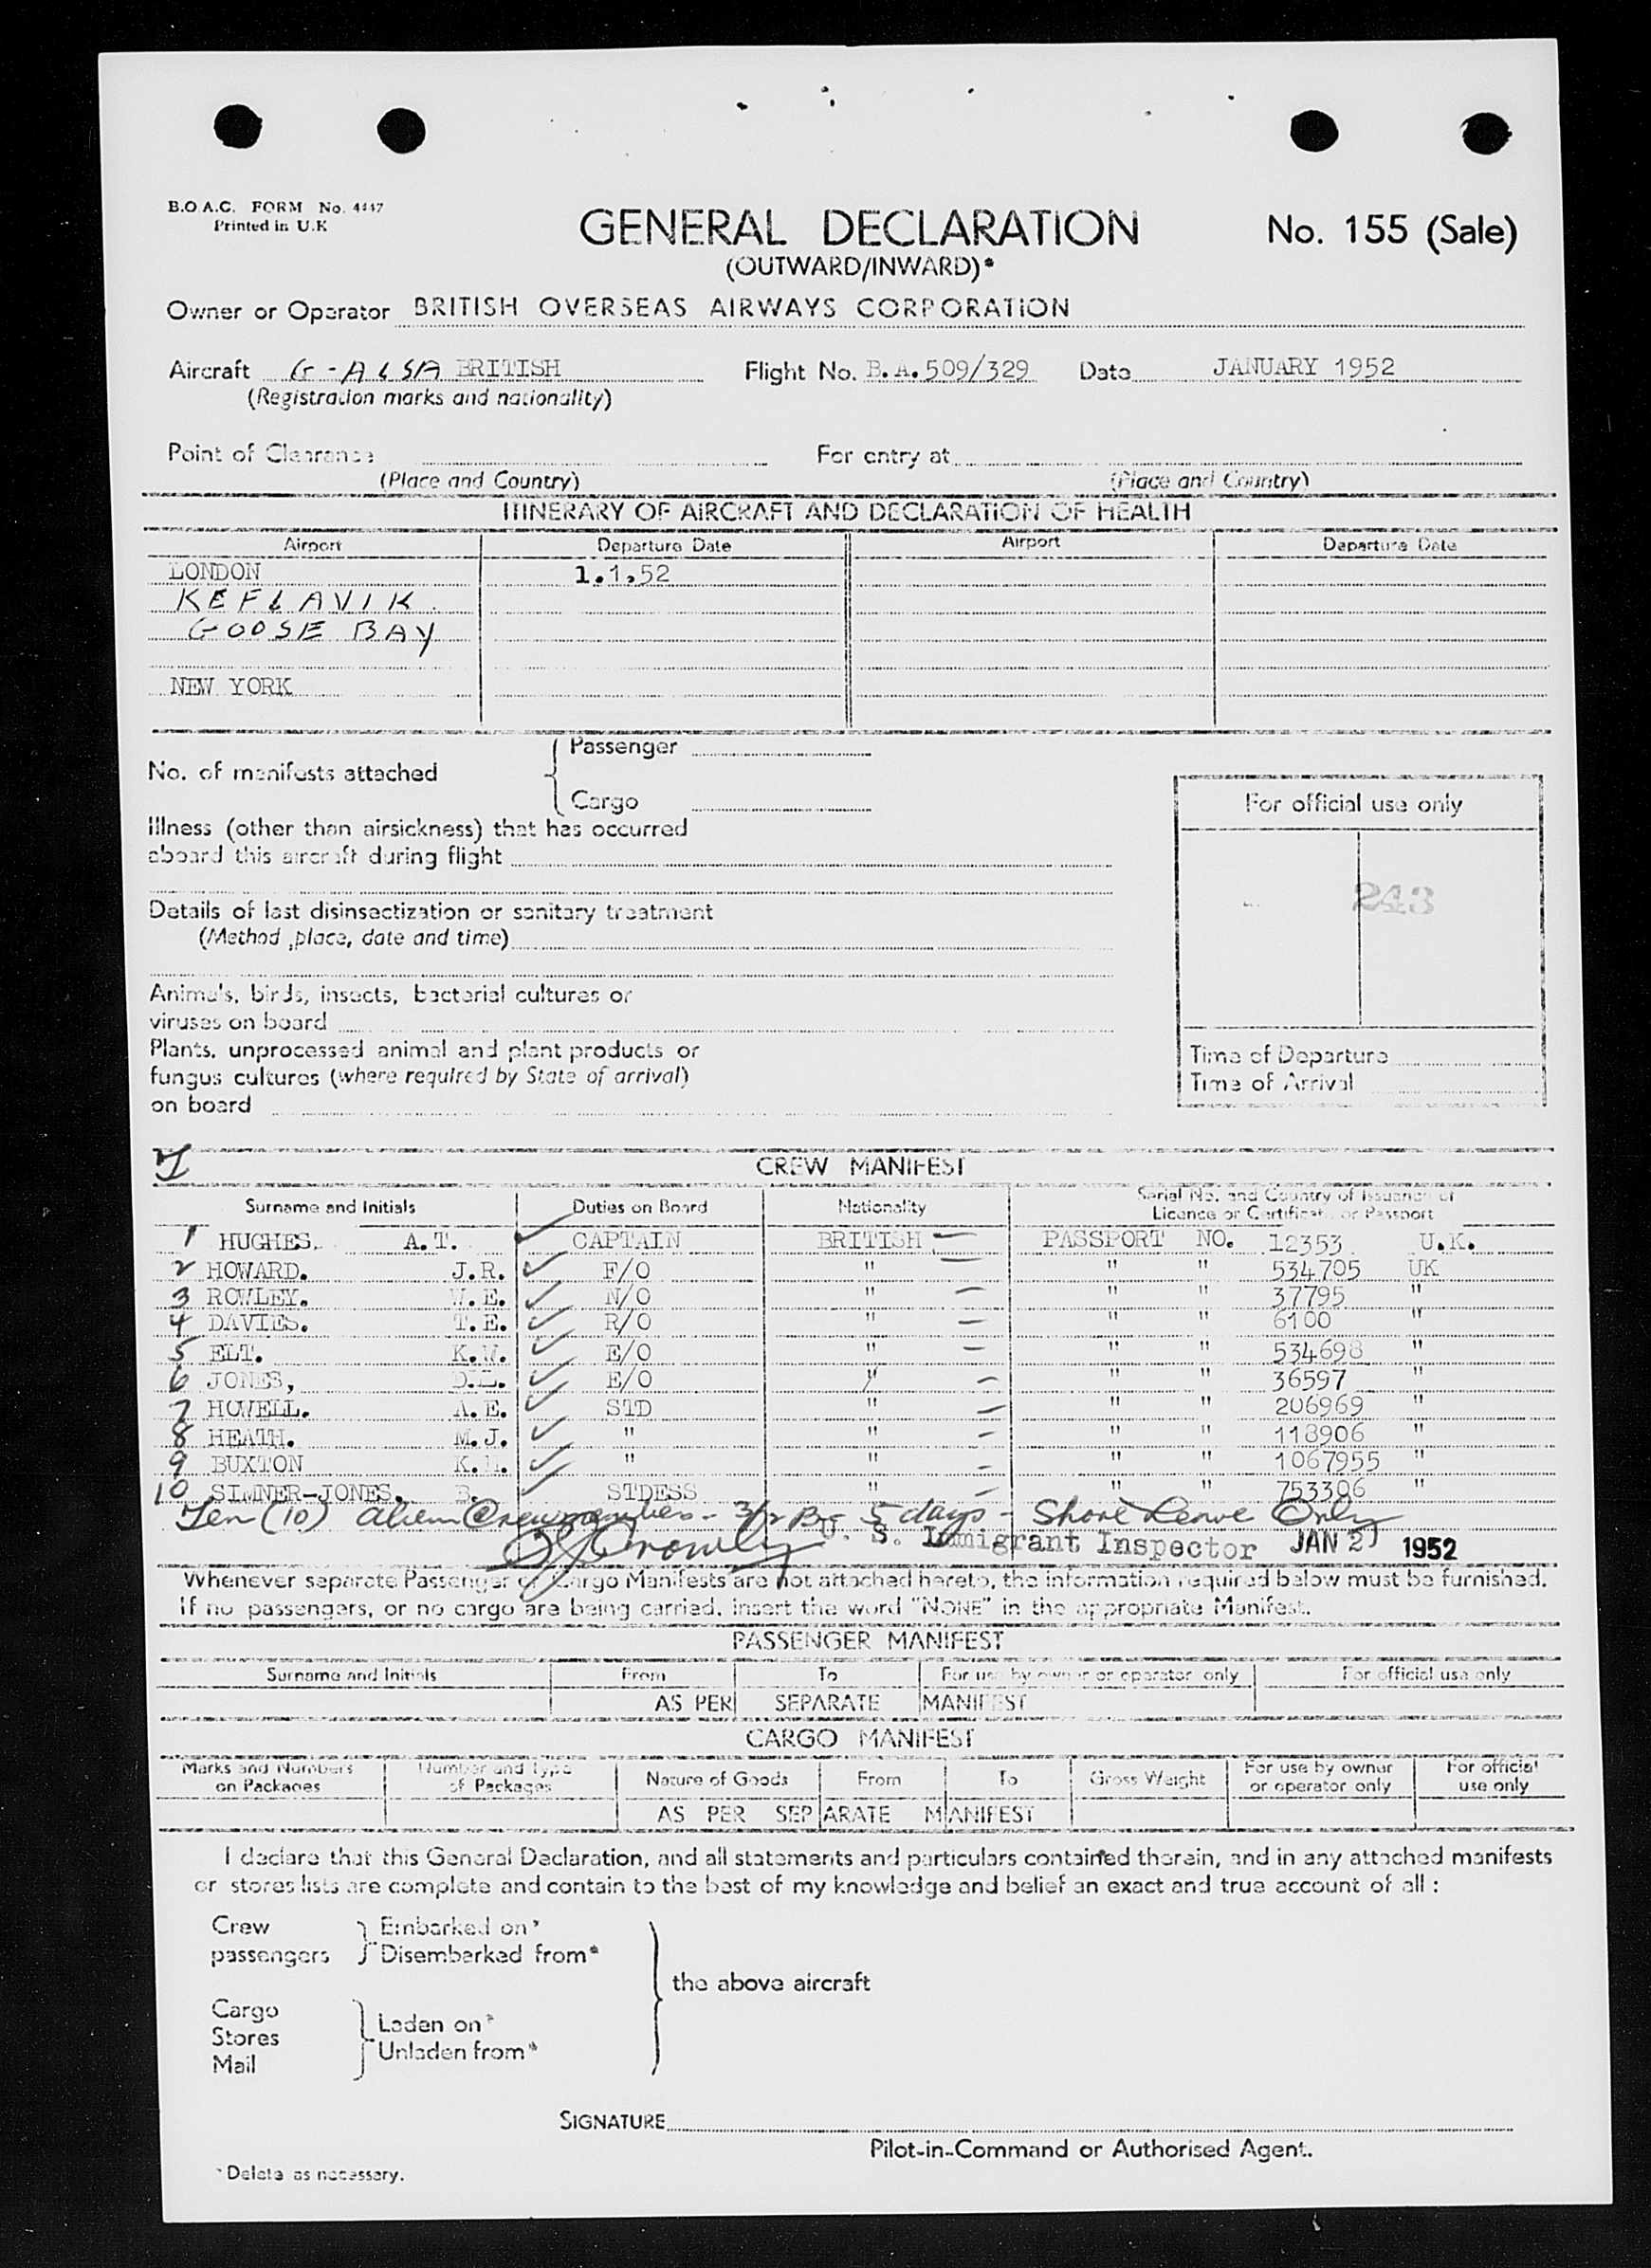 B.O.A.C. FORM No. 4447
Printed in U.K
GENERAL DECLARATION
No. 155 (Sale)
(OUTWARD/INWARD)*
Owner or Operator BRITISH OVERSEAS AIRWAYS CORPORATION
Aircraft G-ALSA BRITISH Flight No. B.A.509/329 Date JANUARY 1952
(Registration marks and nationality)
Point of Clearance For entry at
(Place and Country) (Place and Country)
ITINERARY OF AIRCRAFT AND DECLARATION OF HEALTH
Airport Departure Date Airport Departure Date
LONDON 1.1.52
KEFLAVIK
GOOSE BAY
NEW YORK
No. of manifests attached
Passenger
Cargo
Illness (other than airsickness) that has occurred
aboard this aircraft during flight
Details of last disinsectization or sanitary treatment
(Method ,place, date and time)
Animals, birds, insects, bacterial cultures or
viruses on board
Plants, unprocessed animal and plant products or
fungus cultures (where required by State of arrival)
on board
For official use only
243
Time of Departure
Time of Arrival
CREW MANIFEST
Surname and Initials Duties on Board Nationality Serial No. and Country of Issuance of
Licence or Certificate or Passport
1 HUGHES. A.T. CAPTAIN BRITISH PASSPORT NO. 12353 U.K.
2 HOWARD. J.R. F/O " " " 534705 UK
3 ROWLEY. W.E. N/O " " " 37795 "
4 DAVIES. T.E. R/O " " " 6100 "
5 ELT. K.W. E/O " " " 534698 "
6 JONES, D.L. E/O " " " 36597 "
7 HOWELL. A.E. STD " " " 206969 "
8 HEATH. M.J. " " " " 118906 "
9 BUXTON K.M. " " " " 1067955 "
10 SIMNER-JONES. B. STDESS " " " 753306 "
Ten (10) Alien Crewmembers - 3/2 B - 5 days - Shore Leave Only
U. S. Immigrant Inspector JAN 2 1952
Whenever separate Passenger or Cargo Manifests are not attached hereto, the information required below must be furnished.
If no passengers, or no cargo are being carried, insert the word "NONE" in the appropriate Manifest.
PASSENGER MANIFEST
Surname and Initials From To For use by owner or operator only For official use only
AS PER SEPARATE MANIFEST
CARGO MANIFEST
Marks and Numbers on Packages Number and Type of Packages Nature of Goods From To Gross Weight For use by owner or operator only For official use only
AS PER SEPARATE MANIFEST
I declare that this General Declaration, and all statements and particulars contained therein, and in any attached manifests
or stores lists are complete and contain to the best of my knowledge and belief an exact and true account of all :
Crew Embarked on*
passengers Disembarked from*
the above aircraft
Cargo
Stores Laden on*
Mail Unladen from*
SIGNATURE
Pilot-in-Command or Authorised Agent.
* Delete as necessary.